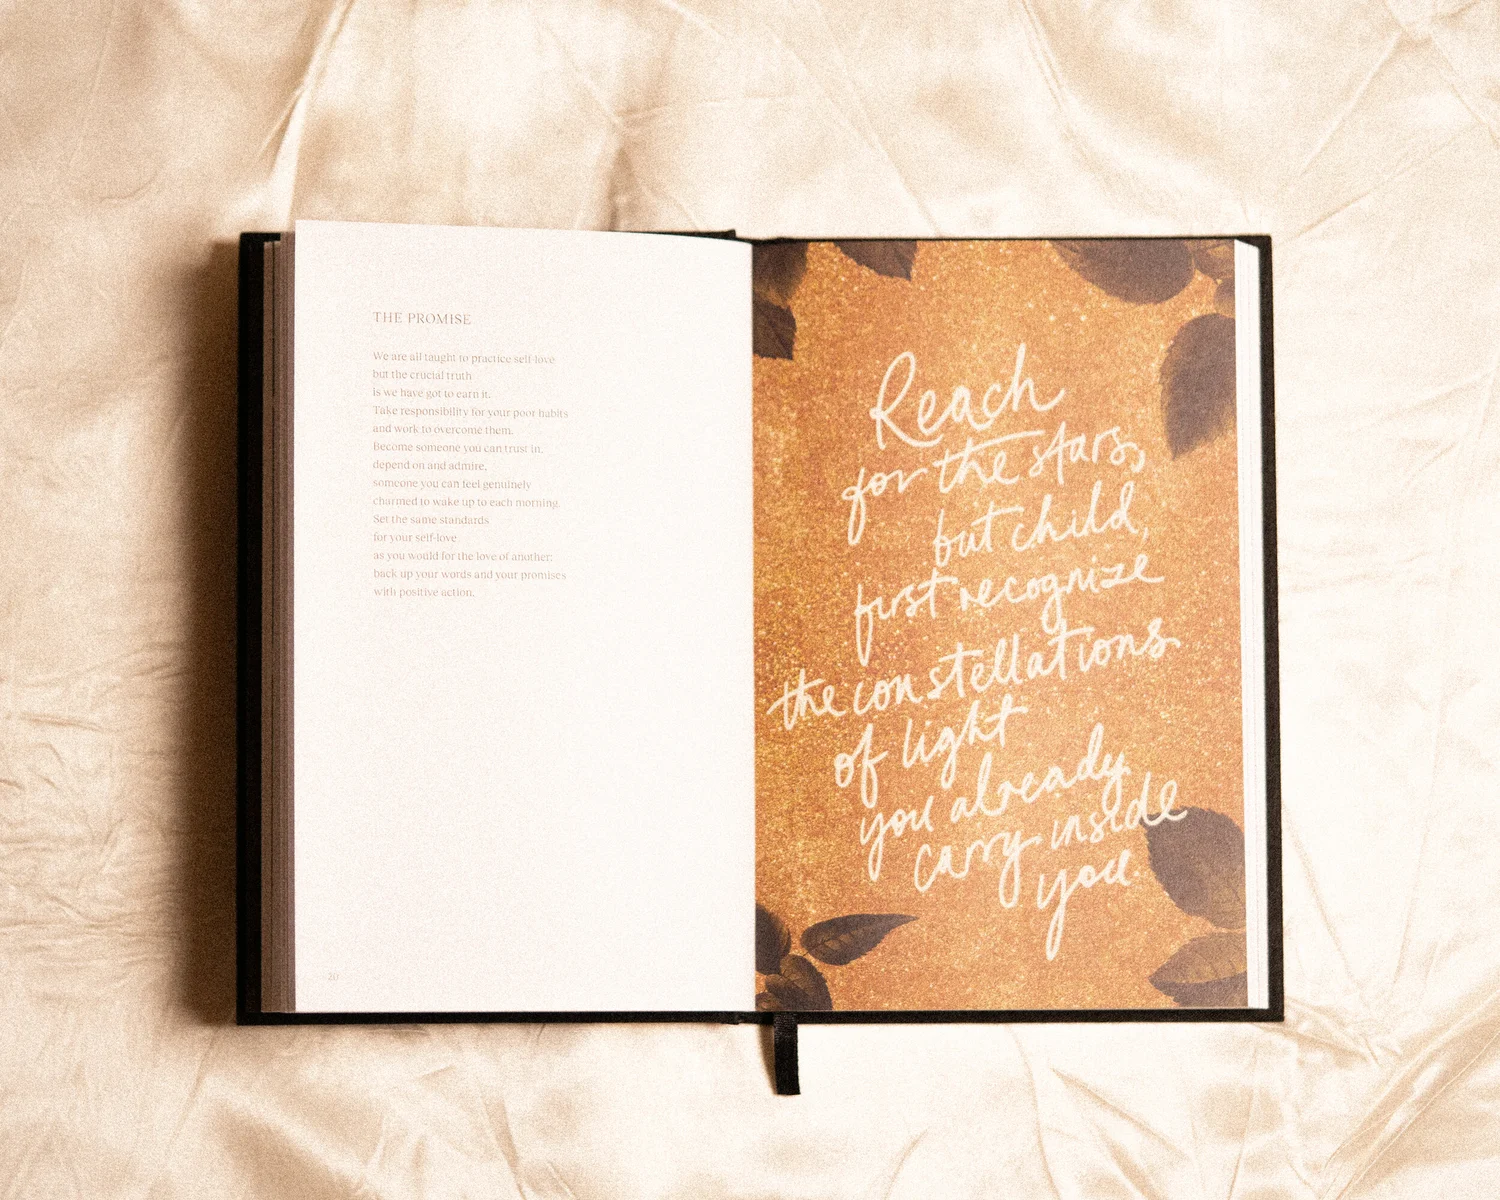 THE PROMISE
We are all taught to practice self-love
but the crucial truth
is we have got to earn it.
Take responsibility for your poor habits
and work to overcome them.
Become someone you can trust in,
depend on and admire,
someone you can feel genuinely
charmed to wake up to each morning.
Set the same standards
for your self-love
as you would for the love of another:
back up your words and your promises
with positive action.
20
Reach
for the stars,
but child,
first recognize
the constellations
of light
you already
carry inside
you.